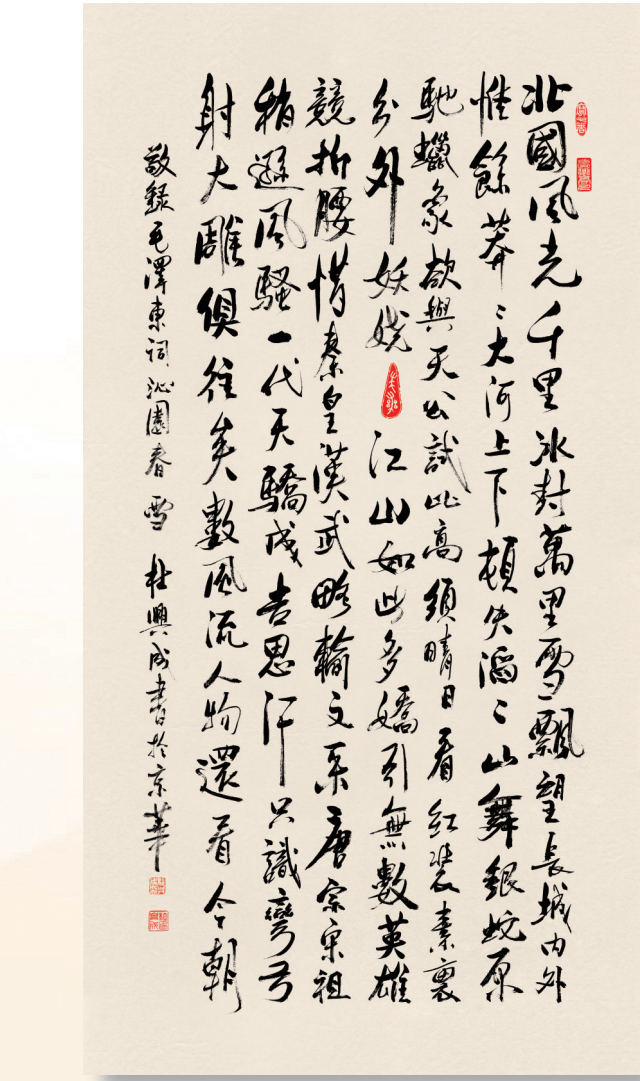 北國風光千里冰封萬里雪飄望長城内外
惟餘莽〻大河上下頓失滔〻山舞銀蛇原
馳蠟象欲與天公試比高須晴日看紅裝素裹
分外妖嬈 江山如此多嬌引無數英雄
競折腰惜秦皇漢武略輸文采唐宗宋祖
稍遜風騷一代天驕成吉思汗只識彎弓
射大雕俱往矣數風流人物還看今朝
敬錄毛澤東詞沁園春雪 杜興成書於京華